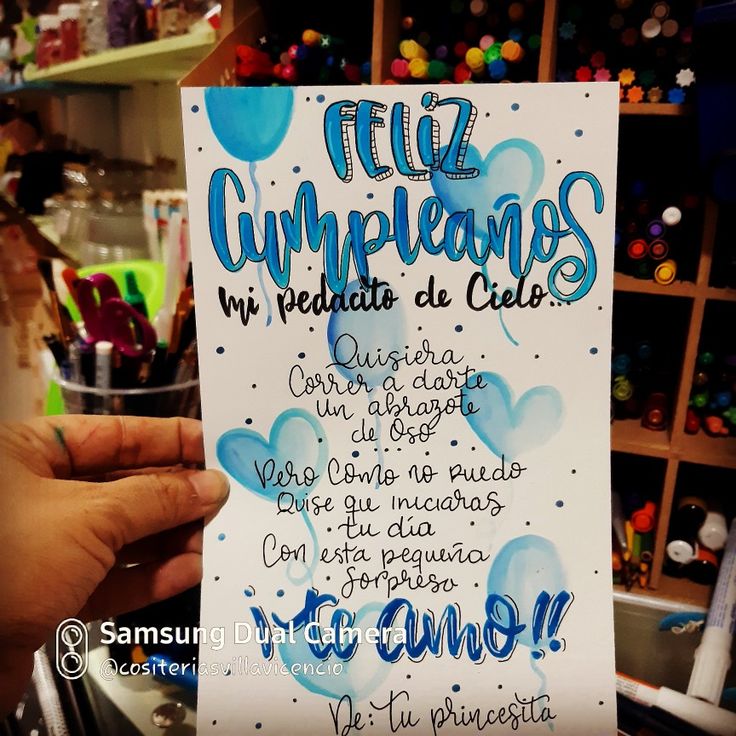 FELIZ
Cumpleaños
mi pedacito de Cielo...
Quisiera
Correr a darte
un abrazote
de oso
Pero Como no puedo
Quise que iniciaras
tu día
Con esta pequeña
Sorpresa
¡¡te amo!!
De: Tu princesita
Samsung Dual Camera
@cositeriasvillavicencio